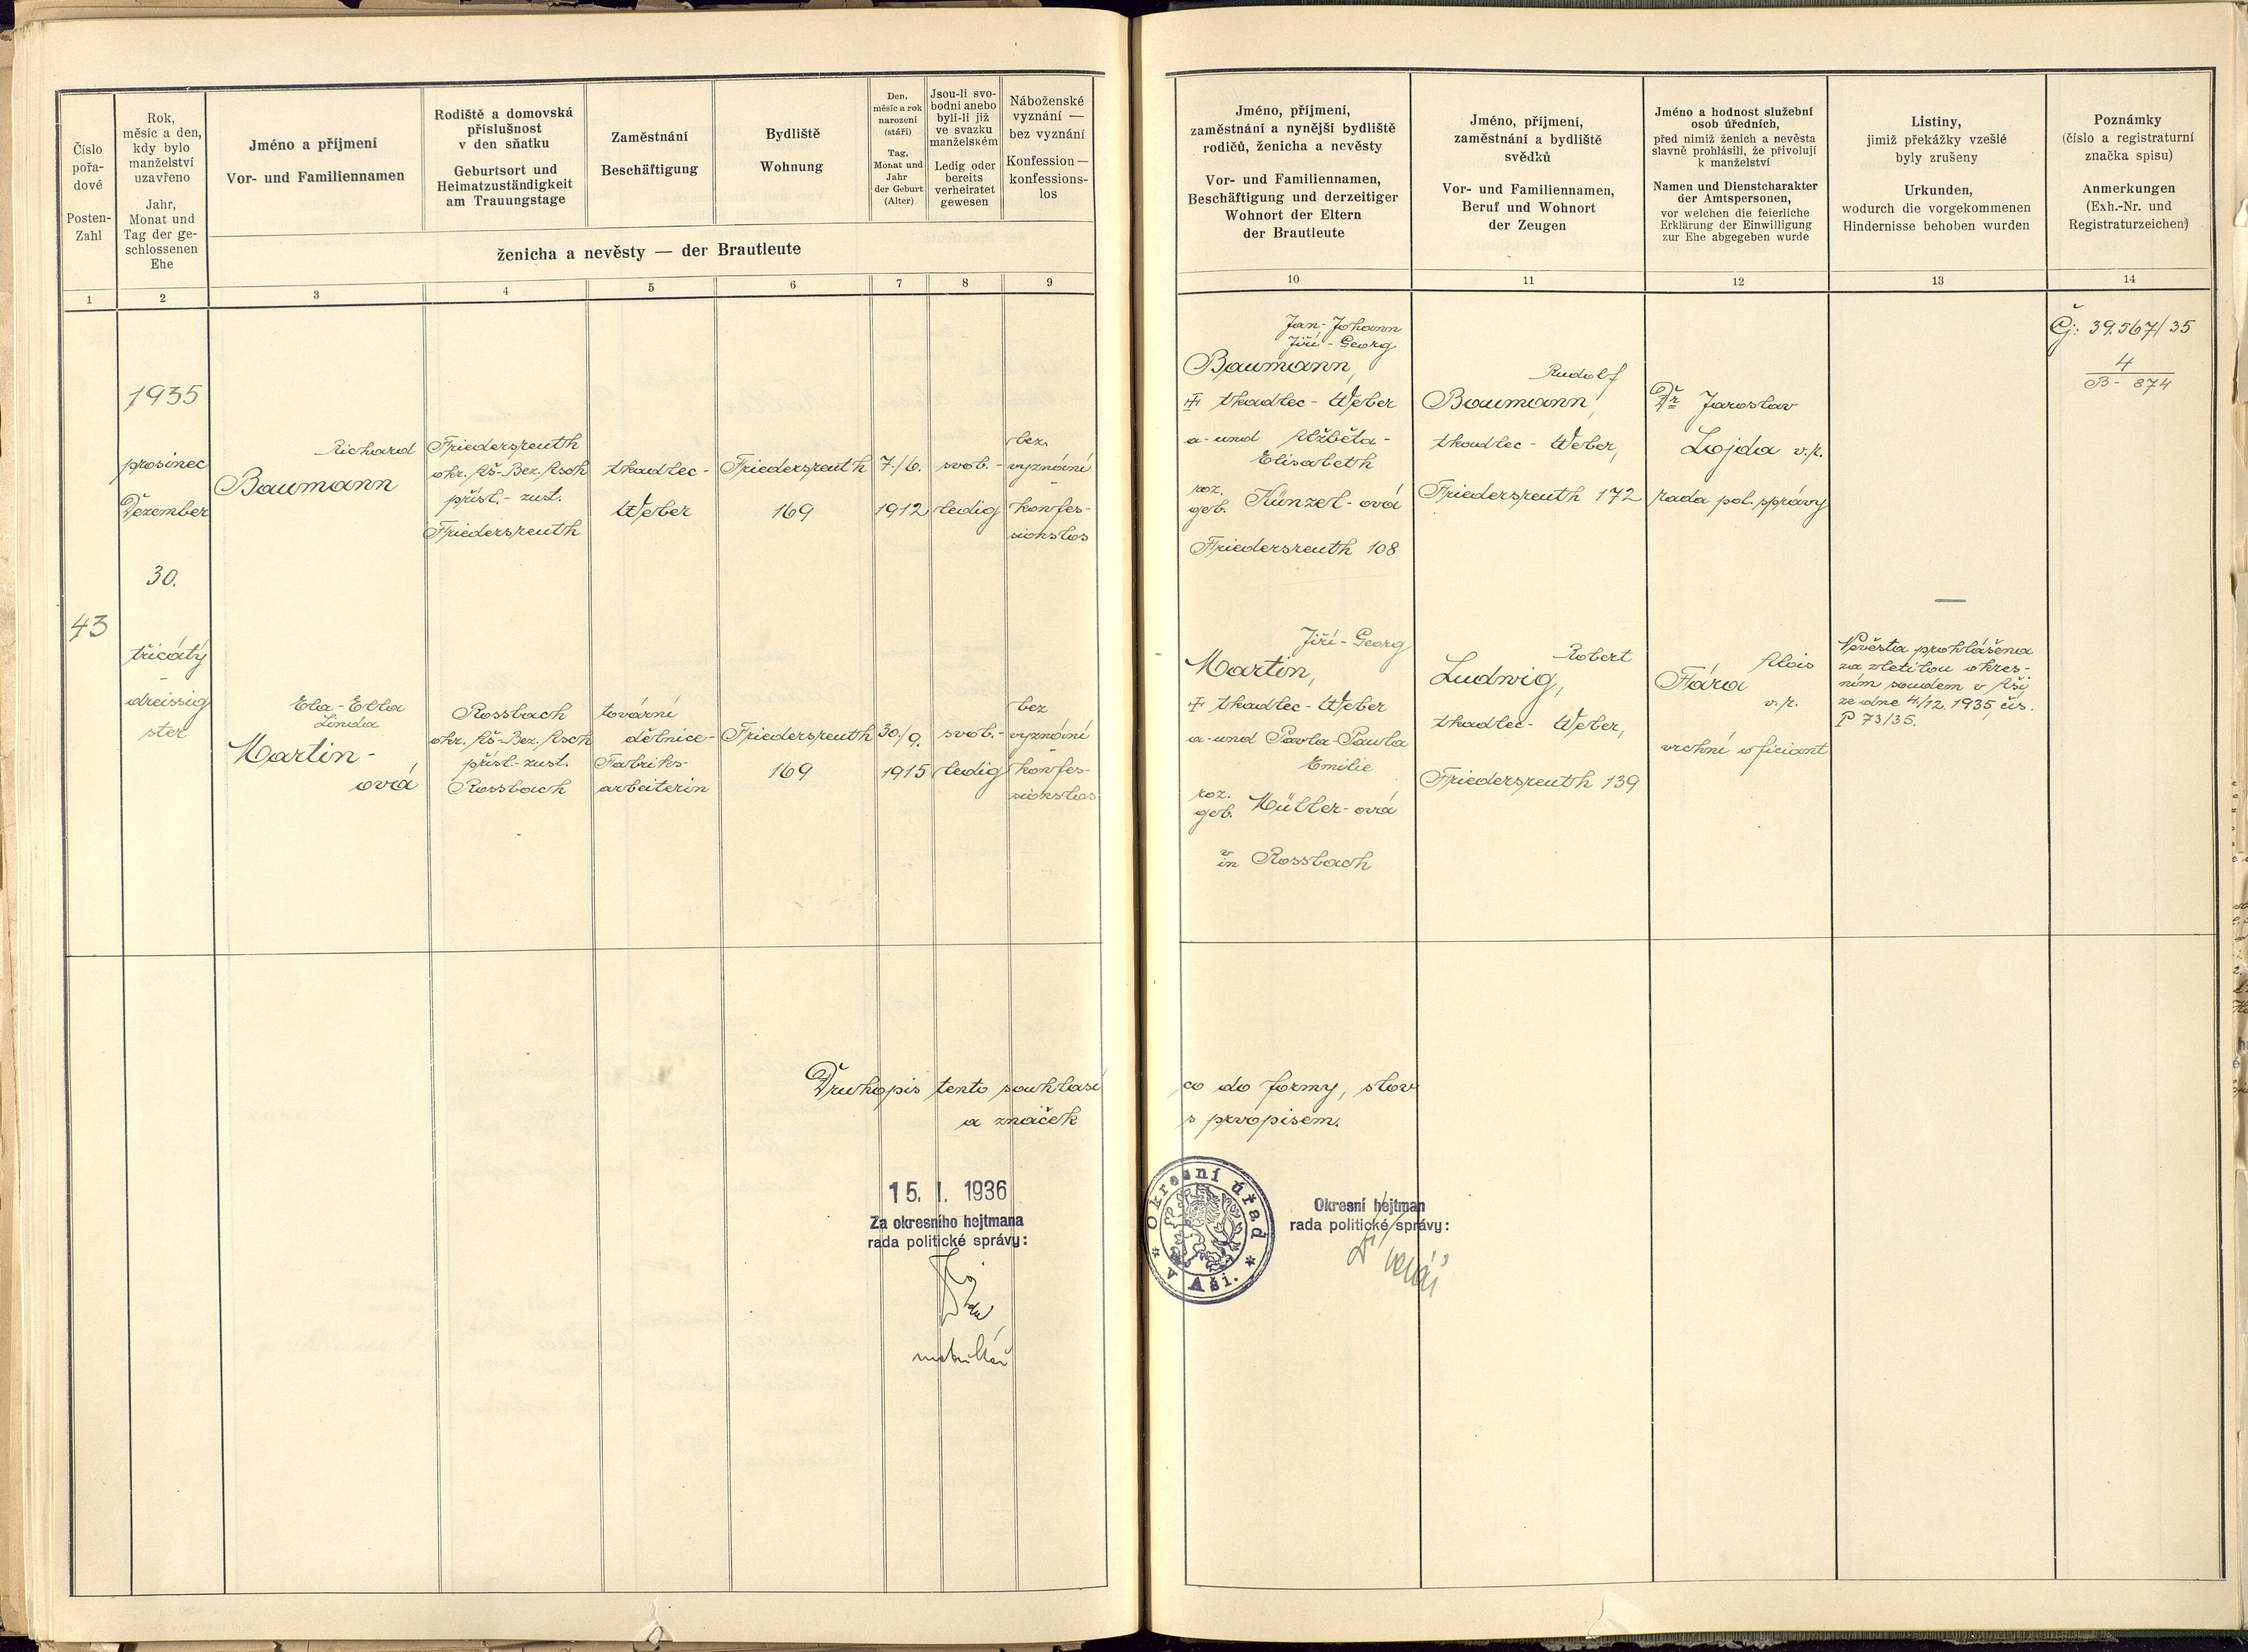 Číslo
pořa-
dové
Posten-
Zahl
Rok,
měsíc a den,
kdy bylo
manželství
uzavřeno
Jahr,
Monat und
Tag der ge-
schlossenen
Ehe
Jméno a příjmení
Vor- und Familiennamen
Rodiště a domovská
příslušnost
v den sňatku
Geburtsort und
Heimatzuständigkeit
am Trauungstage
Zaměstnání
Beschäftigung
Bydliště
Wohnung
Den,
měsíc a rok
narození
(stáří)
Tag,
Monat und
Jahr
der Geburt
(Alter)
Jsou-li svo-
bodni anebo
byli-li již
ve svazku
manželském
Ledig oder
bereits
verheiratet
gewesen
Náboženské
vyznání —
bez vyznání
Konfession —
konfessions-
los
ženicha a nevěsty — der Brautleute
1 2 3 4 5 6 7 8 9
43
1935
prosinec
Dezember
30.
třicátý
-
dreissig
ster
Richard
Baumann
Friedersreuth
okr. Aš-Bez. Asch
přísl.- zust.
Friedersreuth
tkadlec-
Weber
Friedersreuth
169
7./6.
1912
svob. -
ledig
bez
vyznání
-
konfes-
sionslos
Ela - Ella
Linda
Martin-
ová
Rossbach
okr. Aš-Bez. Asch
přísl.- zust.
Rossbach
tovární
dělnice-
Fabriks-
arbeiterin
Friedersreuth
169
30./9.
1915
svob. -
ledig
bez
vyznání
-
konfes-
sionslos
Druhopis tento souhlasí
a značek
15. I. 1936
Za okresního hejtmana
rada politické správy:
Jméno, příjmení,
zaměstnání a nynější bydliště
rodičů, ženicha a nevěsty
Vor- und Familiennamen,
Beschäftigung und derzeitiger
Wohnort der Eltern
der Brautleute
Jméno, příjmení,
zaměstnání a bydliště
svědků
Vor- und Familiennamen,
Beruf und Wohnort
der Zeugen
Jméno a hodnost služební
osob úředních,
před nimiž ženich a nevěsta
slavně prohlásili, že přivolují
k manželství
Namen und Dienstcharakter
der Amtspersonen,
vor welchen die feierliche
Erklärung der Einwilligung
zur Ehe abgegeben wurde
Listiny,
jimiž překážky vzešlé
byly zrušeny
Urkunden,
wodurch die vorgekommenen
Hindernisse behoben wurden
Poznámky
(číslo a registraturní
značka spisu)
Anmerkungen
(Exh.-Nr. und
Registraturzeichen)
10 11 12 13 14
Jan - Johann
Jiří - Georg
Baumann,
✝ tkadlec - Weber
a - und Alžběta -
Elisabeth
roz.
geb. Künzel - ová
Friedersreuth 108
Rudolf
Baumann,
tkadlec - Weber,
Friedersreuth 172
Dr Jaroslav
Lojda v.r.
rada pol. správy
Čj: 39.567/35
4
B - 874
Jiří - Georg
Martin,
✝ tkadlec - Weber
a - und Pavla - Paula
Emilie
roz.
geb. Müller - ová
v
in Rossbach
Robert
Ludwig,
tkadlec - Weber,
Friedersreuth 139
Alois
Fára
v.r.
vrchní oficiant
—
Nevěsta prohlášena
za zletilou okres-
ním soudem v Aši
ze dne 4/12. 1935, čís.
P 73/35.
co do formy, slov
s prvopisem.
Okresní úřad
v Aši.
Okresní hejtman
rada politické správy: